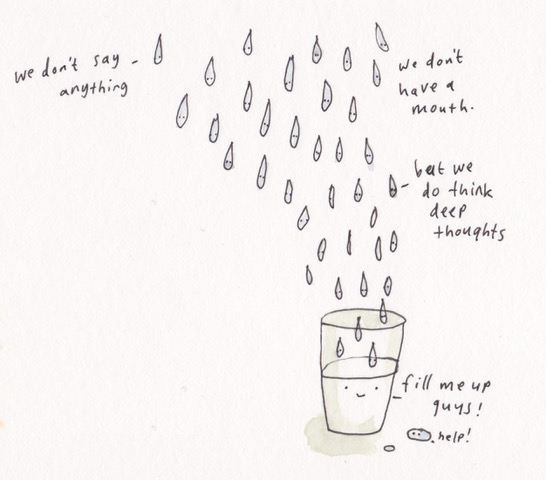 we don't say
anything
we don't
have a
mouth.
but we
do think
deep
thoughts
fill me up
guys!
help!